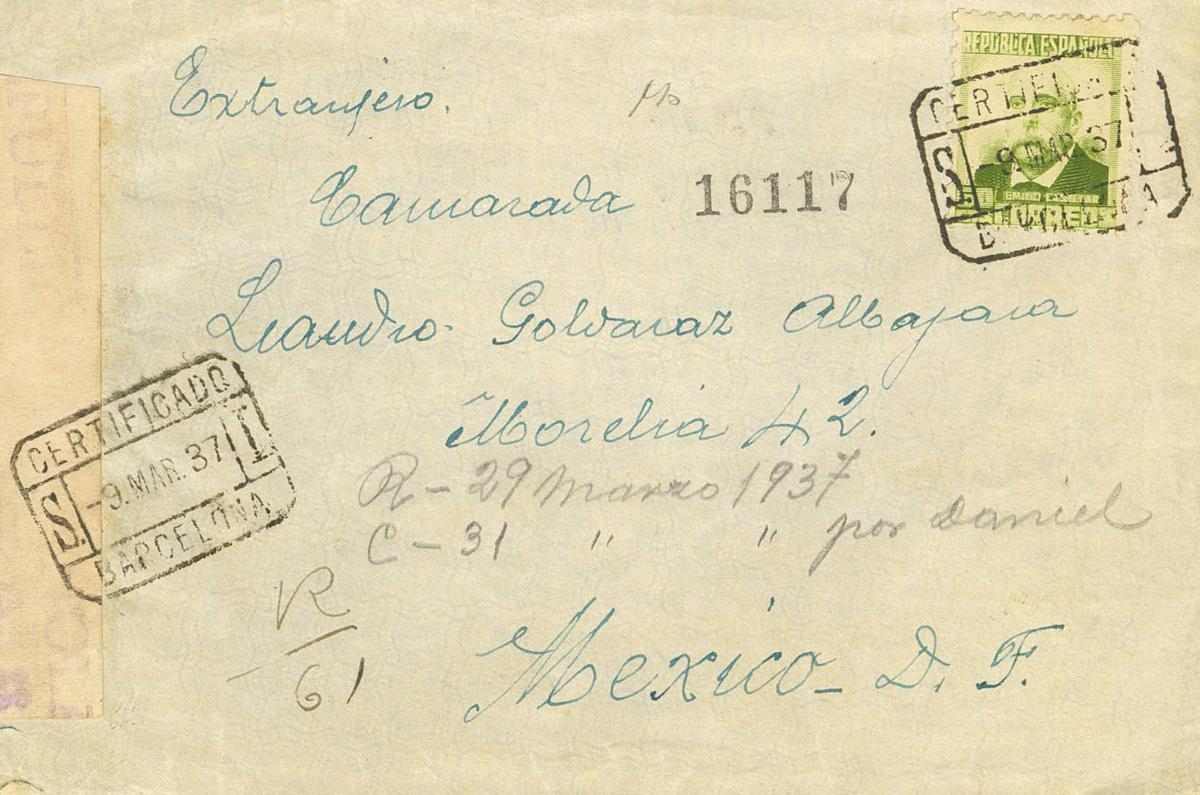 REPÚBLICA ESPAÑOLA
CERTIFICADO
S. -9 MAR. 37
BARCELONA
Extranjero.
Camarada 16117
Leandro Goldaraz Albajara
Morelia 42.
CERTIFICADO
S. -9.MAR.37
BARCELONA
R - 29 Marzo 1937
C - 31 " " por Daniel
R
61
Mexico - D. F.